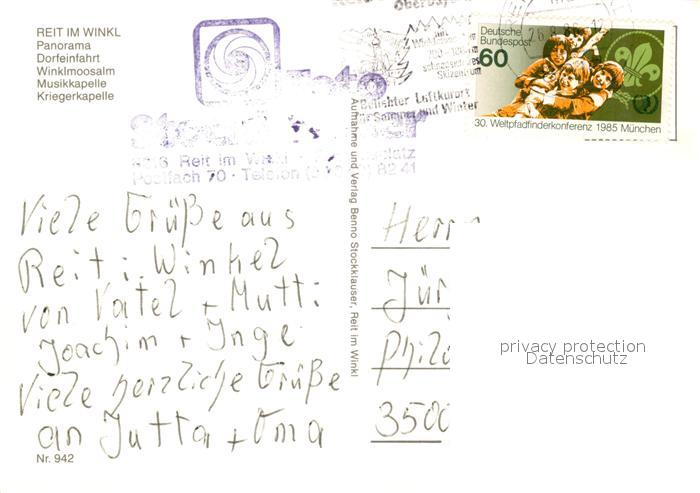 REIT IM WINKL
Panorama
Dorfeinfahrt
Winklmoosalm
Musikkapelle
Kriegerkapelle
Foto
8216 Reit im Winkl
Postfach 70 · Telefon 82 41
Beliebter Luftkurort
Sommer und Winter
Deutsche
Bundespost
60
30. Weltpfadfinderkonferenz 1985 München
Aufnahme und Verlag Benno Stockklauser, Reit im Winkl
Viele Grüße aus
Reit i. Winkel
von Vatel + Mutti
Joachim + Inge
Viele herzliche Grüße
an Jutta + Oma
Nr. 942
Herr
Jür
Phil
3500
privacy protection
Datenschutz